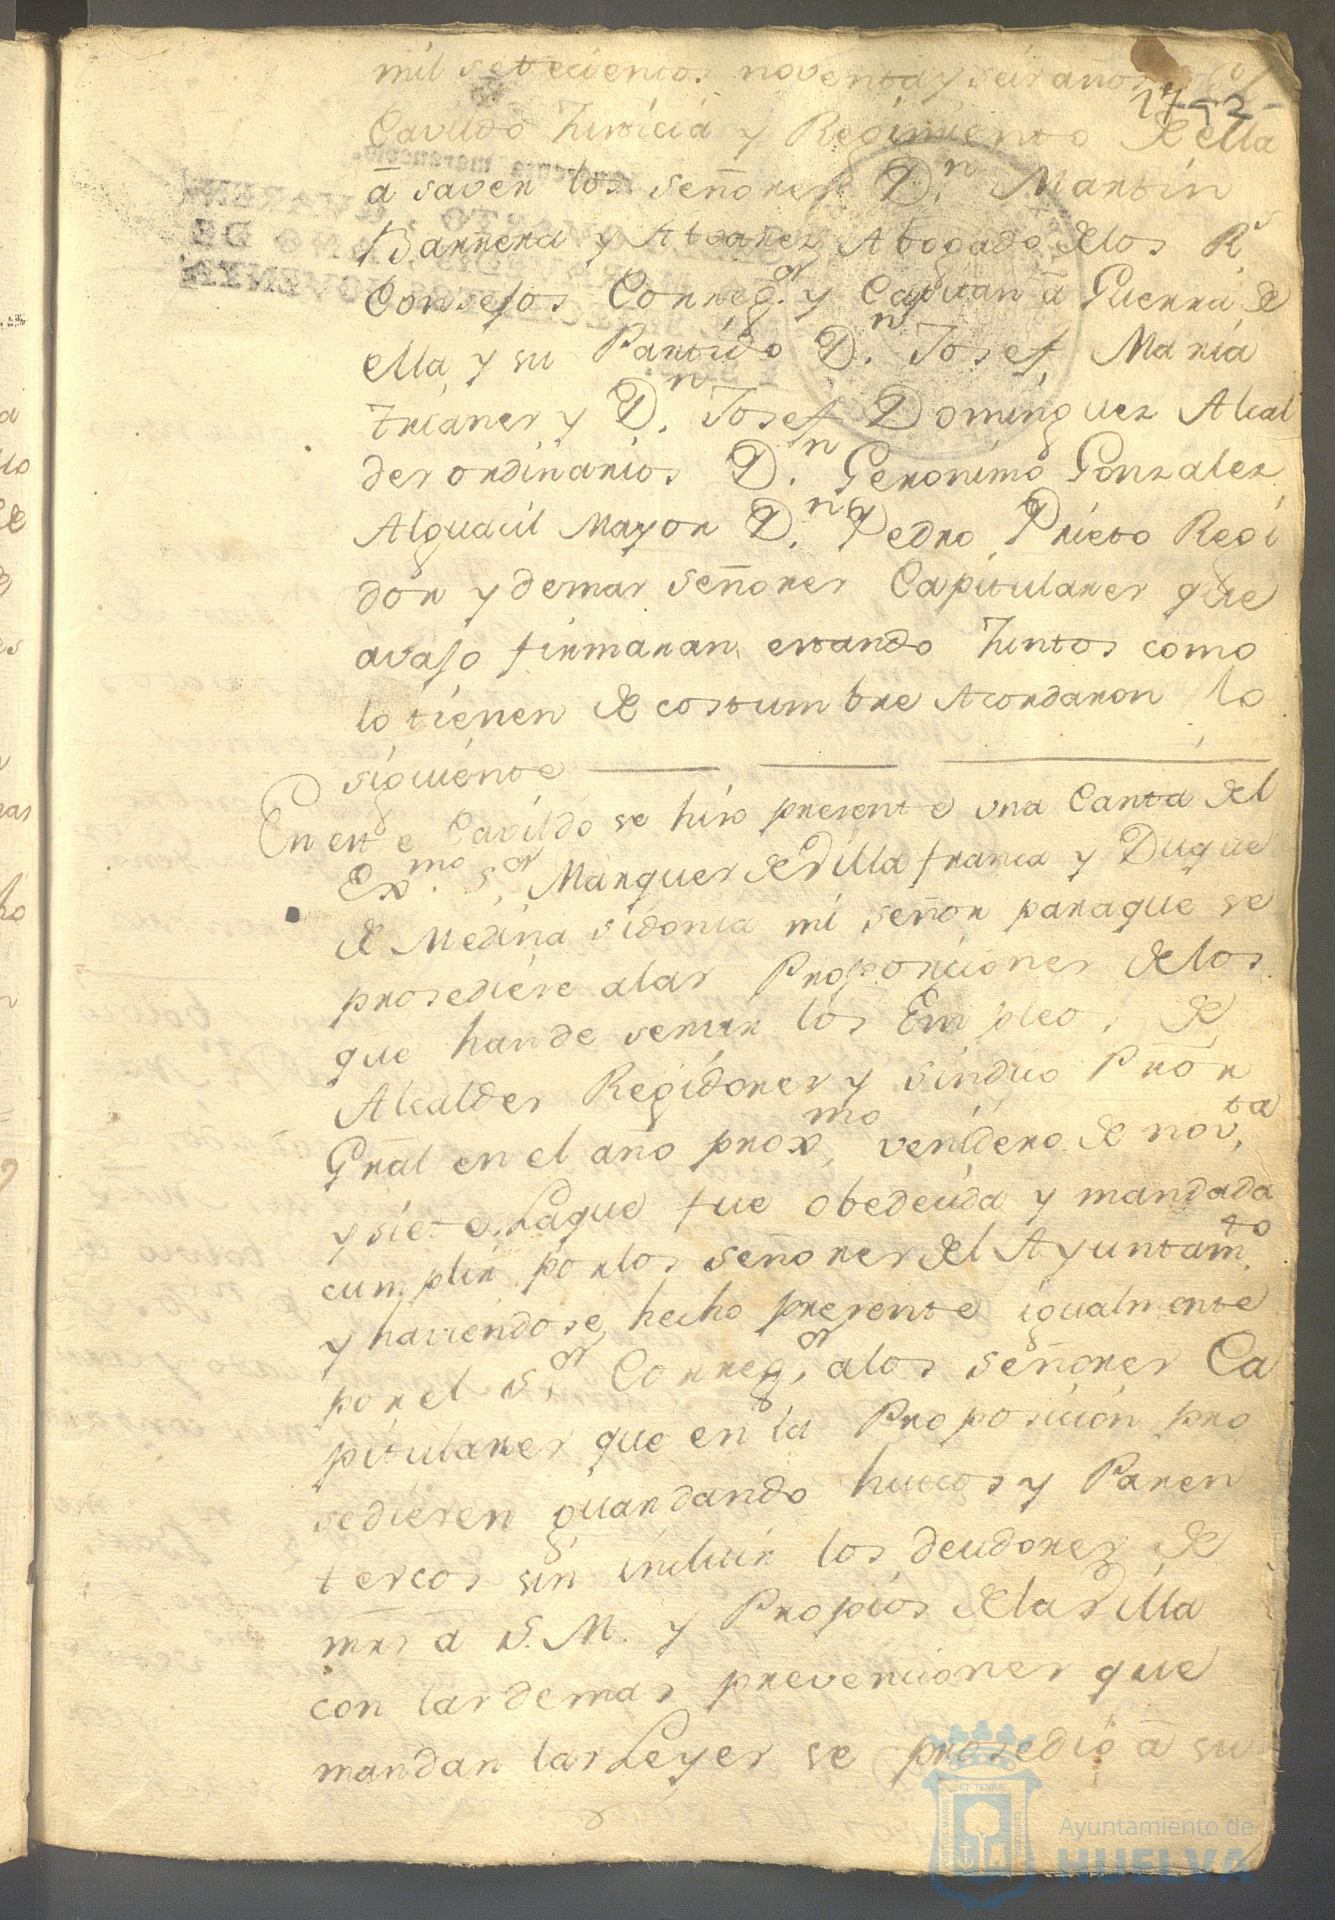 mil setecientos noventa y seis años
17-2-
Cavildo Justicia y Regimiento de ella
ā saver los señores Dn. Martin
Barrera y Alvarez Abogado delos Rs
Consejos Correg.or y Capitan ā Guerra de
ella, y su Partido Dn. Josef Maria
Trianes y Dn. Josef Dominguez Alcal
des ordinarios Dn. Geronimo Gonzalez
Alguacil Mayor Dn. Pedro Prieto Regi
dor y demas señores Capitulares que
avajo firmaran estando Juntos como
lo tienen de costumbre Acordaron lo
siguiente
En este Cavildo se hiso presente una Carta del
Exmo. Sor. Marques de Villa franca y Duque
de Medina sidonia mi señor paraque se
prosediese alas Proporciones delos
que hande servir los Empleos de
Alcaldes Regidores y sindico Prōr
Grāl en el año proxmo. venidero de nov.ta
y siete. Laque fue obedecida y mandada
cumplir porlos señores del Ayuntam.to
y haviendose hecho presente igualmente
por el Sor. Correg.or alos señores Ca
pitulares que en la Proposicion pro
sedieren guardando huecos y Paren
tercos sin incluir los deudores de
mrs a S. M. y Propios dela Villa
con las demas prevenciones que
mandan las Leyes se prosedió ā su
Ayuntamiento de
HUELVA